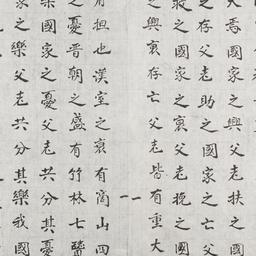 大焉國家之興父老扶之國
之存父老助之國家之亡父
救之國家之衰父老挽之國
之興衰存亡父老皆有重大
有担也漢室之衰有商山四
之憂晉朝之盛有竹林七賢
樂國家之憂父老共其憂國
家之樂父老共分其樂我國